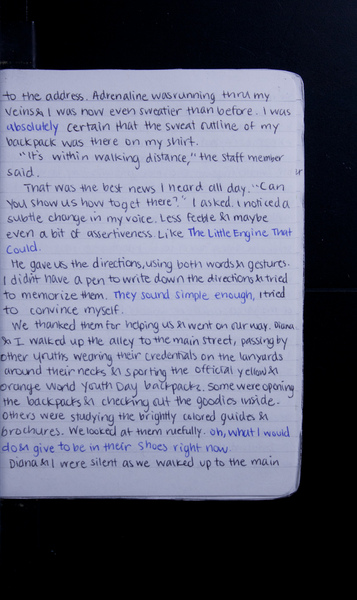 to the address. Adrenaline was running thru my
veins & I was now even sweatier than before. I was
absolutely certain that the sweat outline of my
backpack was there on my shirt.
"It's within walking distance," the staff member
said.
That was the best news I heard all day. "Can
you show us how to get there?" I asked. I noticed a
subtle change in my voice. Less feeble & maybe
even a bit of assertiveness. Like The Little Engine That
Could.
He gave us the directions, using both words & gestures.
I didn't have a pen to write down the directions & tried
to memorize them. They sound simple enough, I tried
to convince myself.
We thanked them for helping us & went on our way. Diana
& I walked up the alley to the main street, passing by
other youths wearing their credentials on the lanyards
around their necks & sporting the official yellow &
orange World Youth Day backpacks. Some were opening
the backpacks & checking out the goodies inside.
Others were studying the brightly colored guides &
brochures. We looked at them ruefully. Oh, what I would
do & give to be in their shoes right now.
Diana & I were silent as we walked up to the main